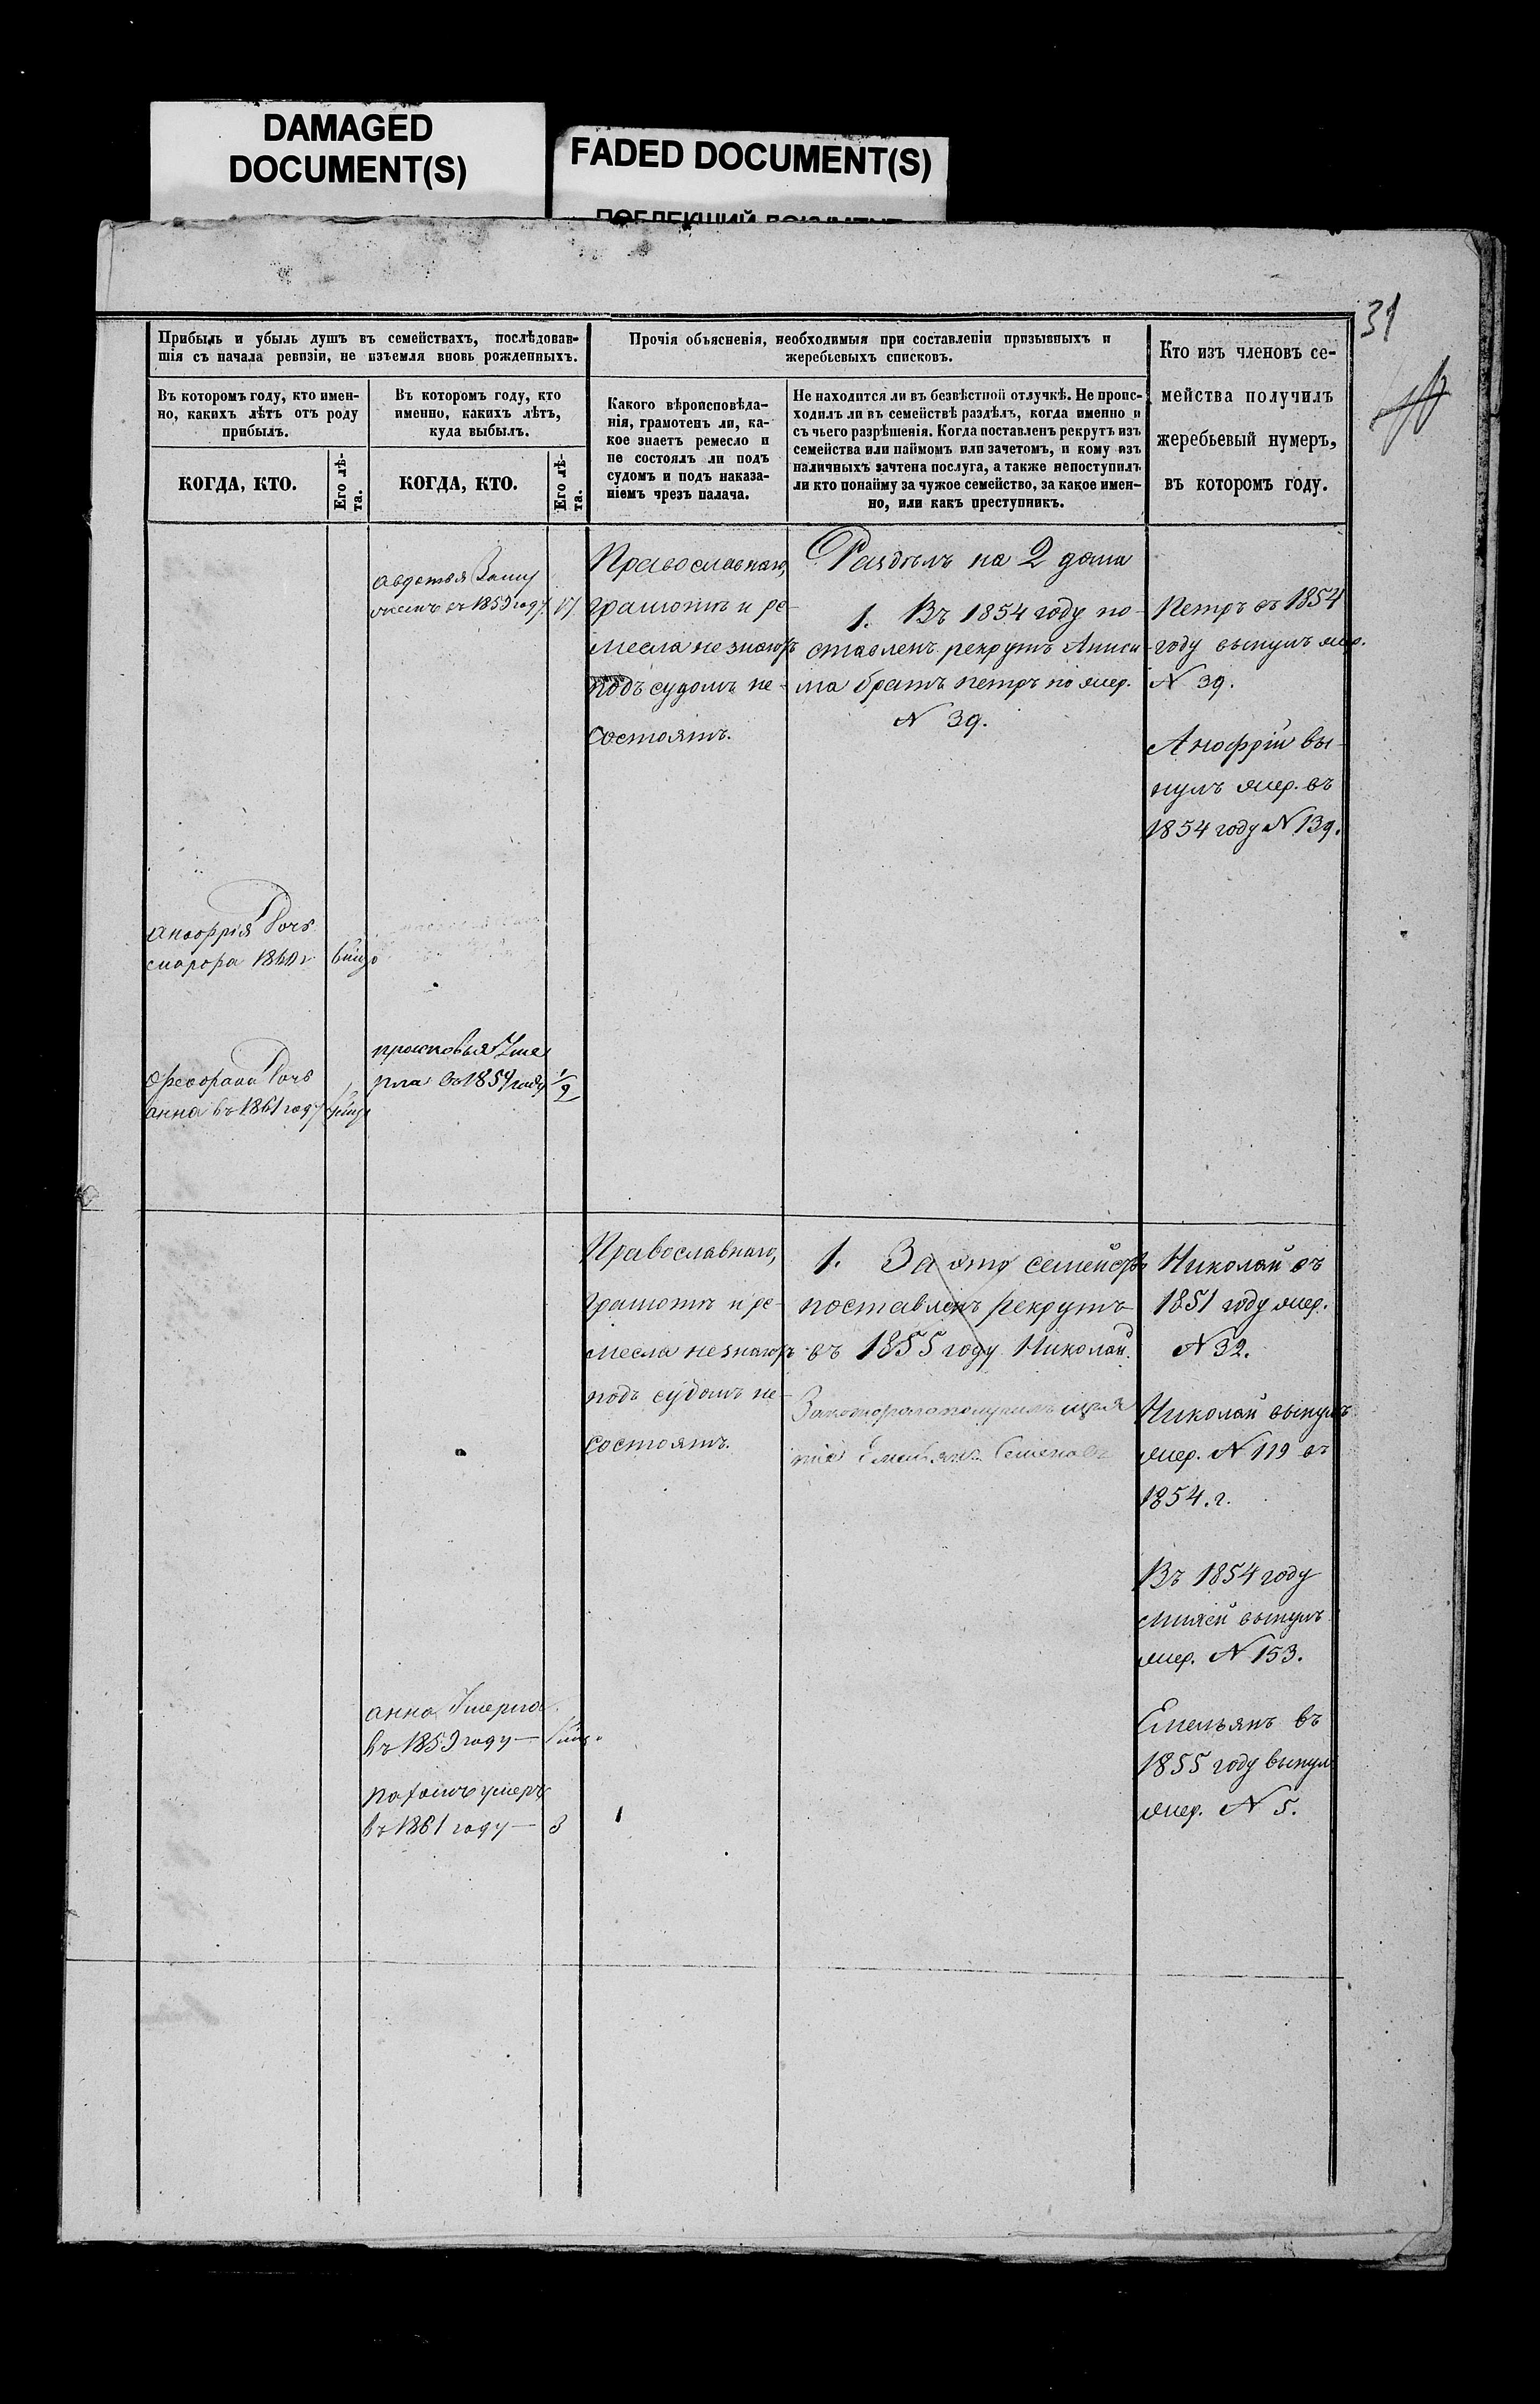 DAMAGED
DOCUMENT(S)
FADED DOCUMENT(S)
31
Прибыль и убыль душъ въ семействахъ, послѣдовав-
шія съ начала ревизіи, не изъемля вновь рожденныхъ.
Въ которомъ году, кто имен-
но, какихъ лѣтъ отъ роду
прибылъ.
КОГДА, КТО.
Его лѣ-
та.
Въ которомъ году, кто
именно, какихъ лѣтъ,
куда выбылъ.
КОГДА, КТО.
Его лѣ-
та.
Прочія объясненія, необходимыя при составленіи призывныхъ и
жеребьевыхъ списковъ.
Какого вѣроисповѣда-
нія, грамотенъ ли, ка-
кое знаетъ ремесло и
не состоялъ ли подъ
судомъ и подъ наказа-
ніемъ чрезъ палача.
Не находится ли въ безвѣстной отлучкѣ. Не проис-
ходилъ ли въ семействѣ раздѣлъ, когда именно и
съ чьего разрѣшенія. Когда поставленъ рекрутъ изъ
семейства или наймомъ или зачетомъ, и кому изъ
наличныхъ зачтена послуга, а также непоступилъ
ли кто понайму за чужое семейство, за какое имен-
но, или какъ преступникъ.
Кто изъ членовъ се-
мейства получилъ
жеребьевый нумеръ,
въ которомъ году.
авдотья
въ 1859 году 17
Православнаго,
грамотѣ и ре-
месла не знаютъ
подъ судомъ не-
состоятъ.
Раздѣлъ на 2 дома
1. Въ 1854 году по-
ставленъ рекрутъ Аниси-
ма братъ петръ по жер.
N 39.
Петръ въ 1854
году вынулъ жер.
N 39.
Анофрій вы-
нулъ жер. въ
1854 году N 139.
анофрія дочь
1860 г
дочь
анна въ 1861 году
прасковья уме
рла въ 1859 году 1/2
Православнаго,
грамотѣ и ре-
месла незнаютъ
подъ судомъ не-
состоятъ.
1. За это семейство
поставленъ рекрутъ
въ 1855 году Николай.
получилъ
Емельянъ Семеновъ
Николай въ
1851 году жер.
N 32.
Николай вынулъ
жер. N 119 въ
1854. г.
Въ 1854 году
вынулъ
жер. N 153.
Емельянъ въ
1855 году вынулъ
жер. N 5.
анна умерла
въ 1859 году —
умеръ
въ 1861 году — 3